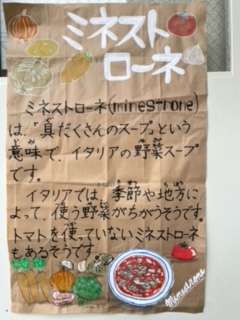 ミネスト
ローネ
ミネストローネ(minestrone)
は、"具だくさんのスープ"という
意味で、イタリアの野菜スープ
です。
イタリアでは、季節や地方に
よって、使う野菜がちがうそうです。
トマトを使っていないミネストローネ
もあるそうです